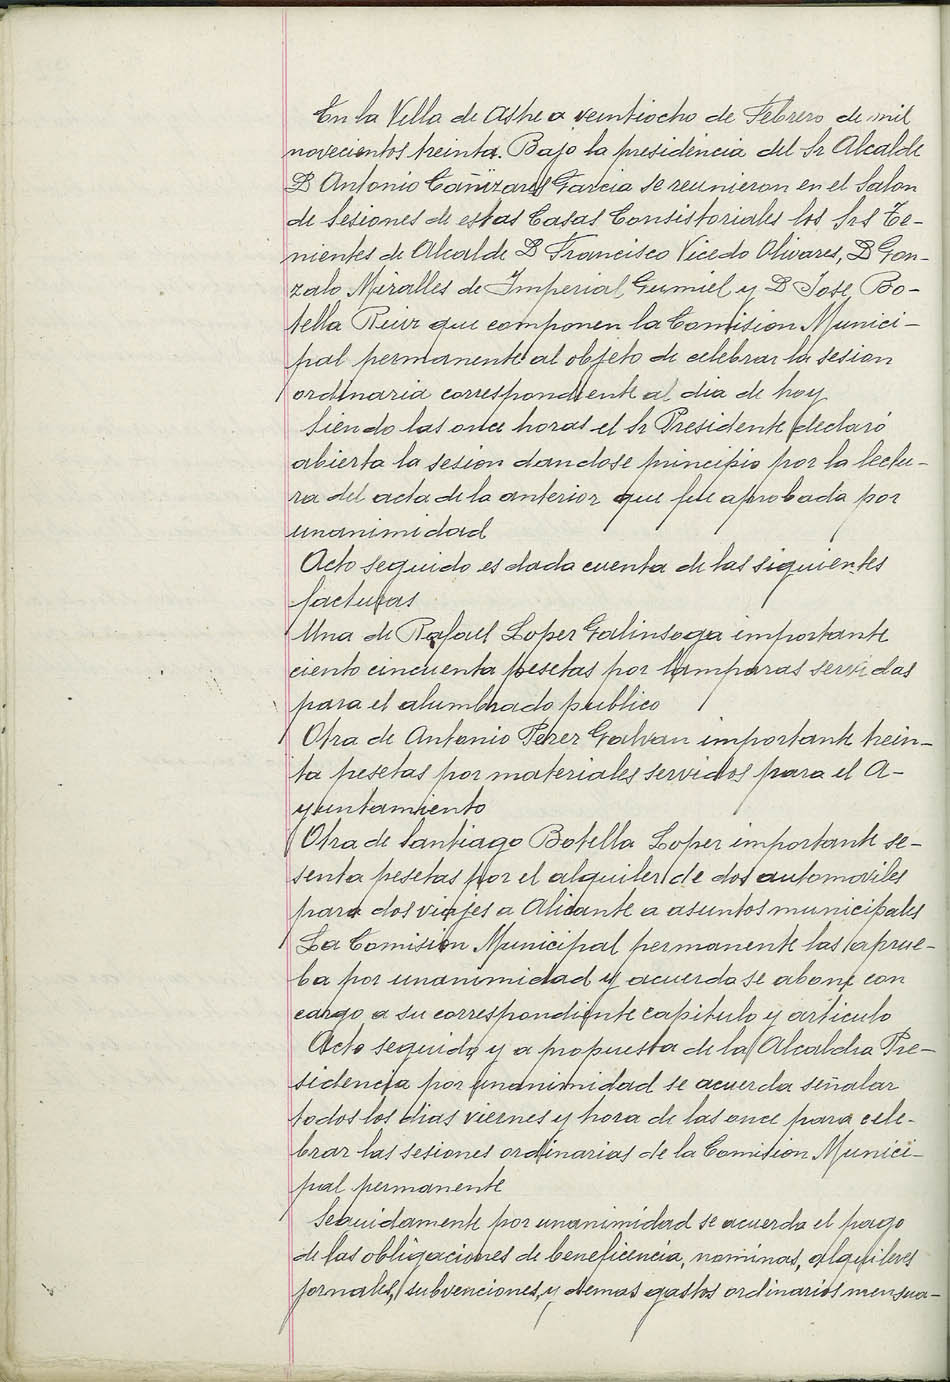 En la Villa de Aspe a veintiocho de Febrero de mil
novecientos treinta. Bajo la presidencia del Sr Alcalde
D Antonio Cañizares Garcia se reunieron en el Salon
de Sesiones de estas Casas Consistoriales los Srs Te-
nientes de Alcalde D Francisco Vicedo Olivares, D Gon-
zalo Miralles de Imperial Gumiel y D Jose Bo-
tella que componen la Comision Munici-
pal permanente al objeto de celebrar la sesion
ordinaria correspondiente al dia de hoy
Siendo las once horas el Sr Presidente declaró
abierta la sesion dandose principio por la lectu-
ra del acta de la anterior que fue aprobada por
unanimidad
Acto seguido es dada cuenta de las siguientes
facturas
Una de Rafael Lopez Galinsoga importante
ciento cincuenta pesetas por lamparas servidas
para el alumbrado publico
Otra de Antonio Perez Galvan importante trein-
ta pesetas por materiales servidos para el A-
yuntamiento
Otra de Santiago Botella Lopez importante se-
senta pesetas por el alquiler de dos automoviles
para dos viajes a Alicante a asuntos municipales
La Comision Municipal permanente las aprue-
ba por unanimidad y acuerda se abone con
cargo a su correspondiente capitulo y articulo
Acto seguido y a propuesta de la Alcaldia Pre-
sidencia por unanimidad se acuerda señalar
todos los dias viernes y hora de las once para cele-
brar las sesiones ordinarias de la Comision Munici-
pal permanente
Seguidamente por unanimidad se acuerda el pago
de las obligaciones de beneficencia, nominas, alquileres
jornales, subvenciones, y demas gastos ordinarios mensua-